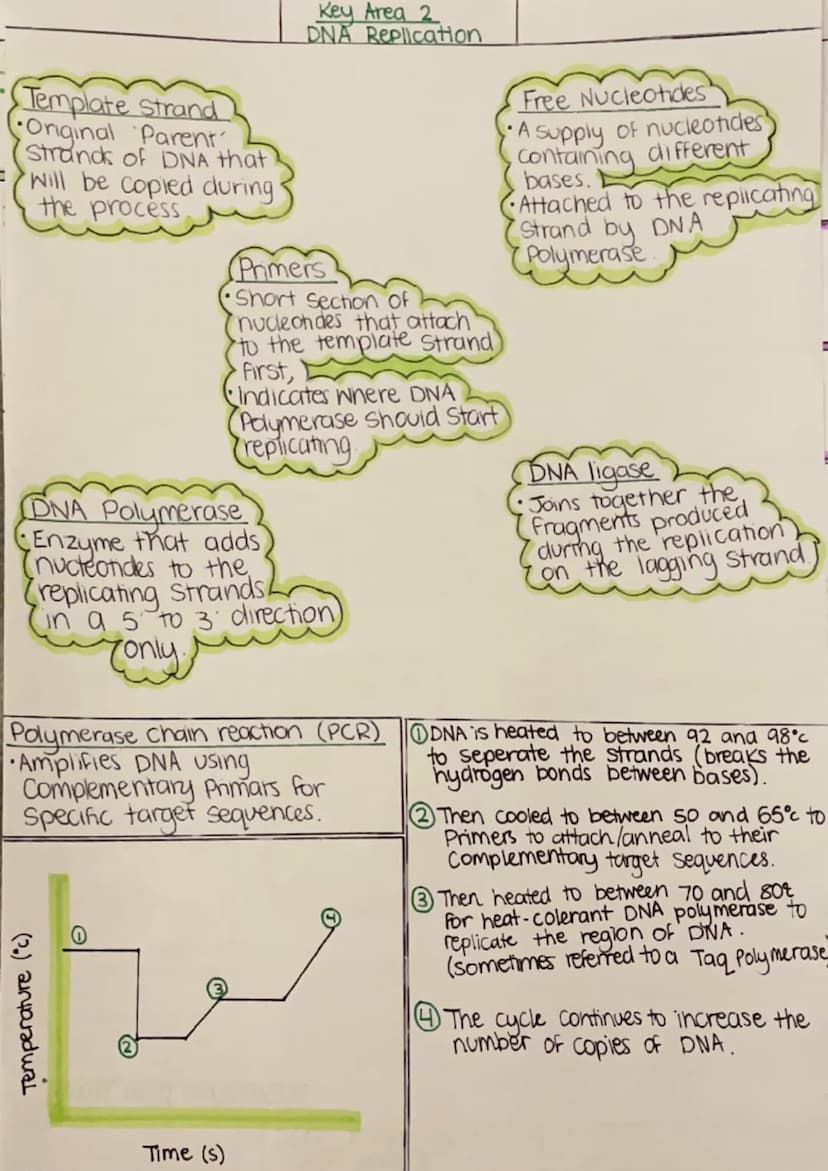 Key Area 2
DNA Replication
Template Strand
• Original 'Parent'
strands of DNA that
will be copied during
the process
Free Nucleotides
• A supply of nucleotides
containing different
bases.
• Attached to the replicating
strand by DNA
Polymerase.
Primers
• Short section of
nucleotides that attach
to the template strand
first,
• Indicates where DNA
Polymerase should start
replicating.
DNA Polymerase
• Enzyme that adds
nucleotides to the
replicating strands
in a 5' to 3' direction
only.
DNA ligase
• Joins together the
fragments produced
during the replication
on the lagging strand.
Polymerase chain reaction (PCR)
• Amplifies DNA using
Complementary Primars for
specific target sequences.
① DNA is heated to between 92 and 98°c
to seperate the strands (breaks the
hydrogen bonds between bases).
② Then cooled to between 50 and 65°c to
Primers to attach/anneal to their
complementary target sequences.
③ Then heated to between 70 and 80°c
for heat-colerant DNA polymerase to
replicate the region of DNA.
(sometimes referred to a Taq Polymerase
④ The cycle continues to increase the
number of copies of DNA.
Temperature (°c)
①
②
③
④
Time (s)